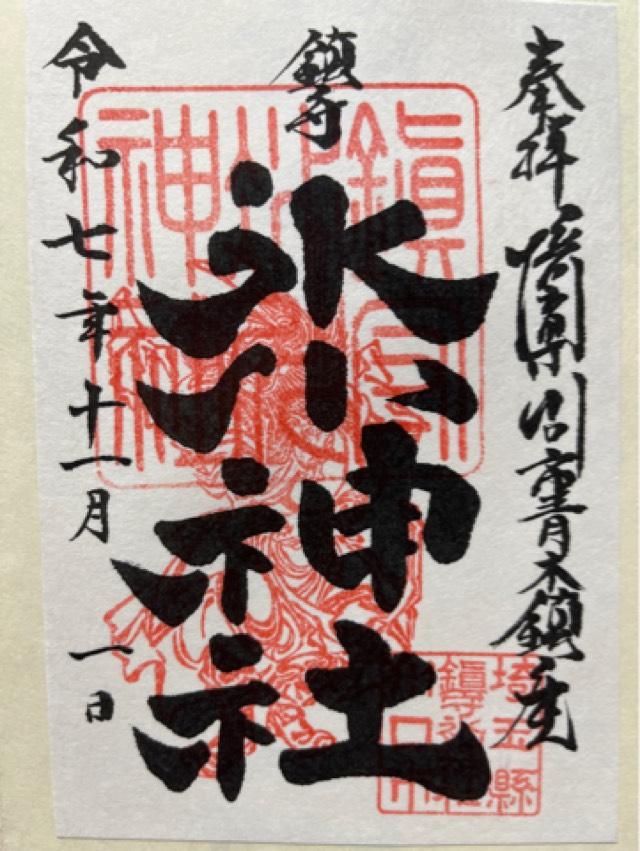 奉拝 埼玉県川口市青木鎮座
鎮守
氷川神社
令和七年十一月 一日
鎮守氷川神社
埼玉縣
川口
鎮守氷川神社